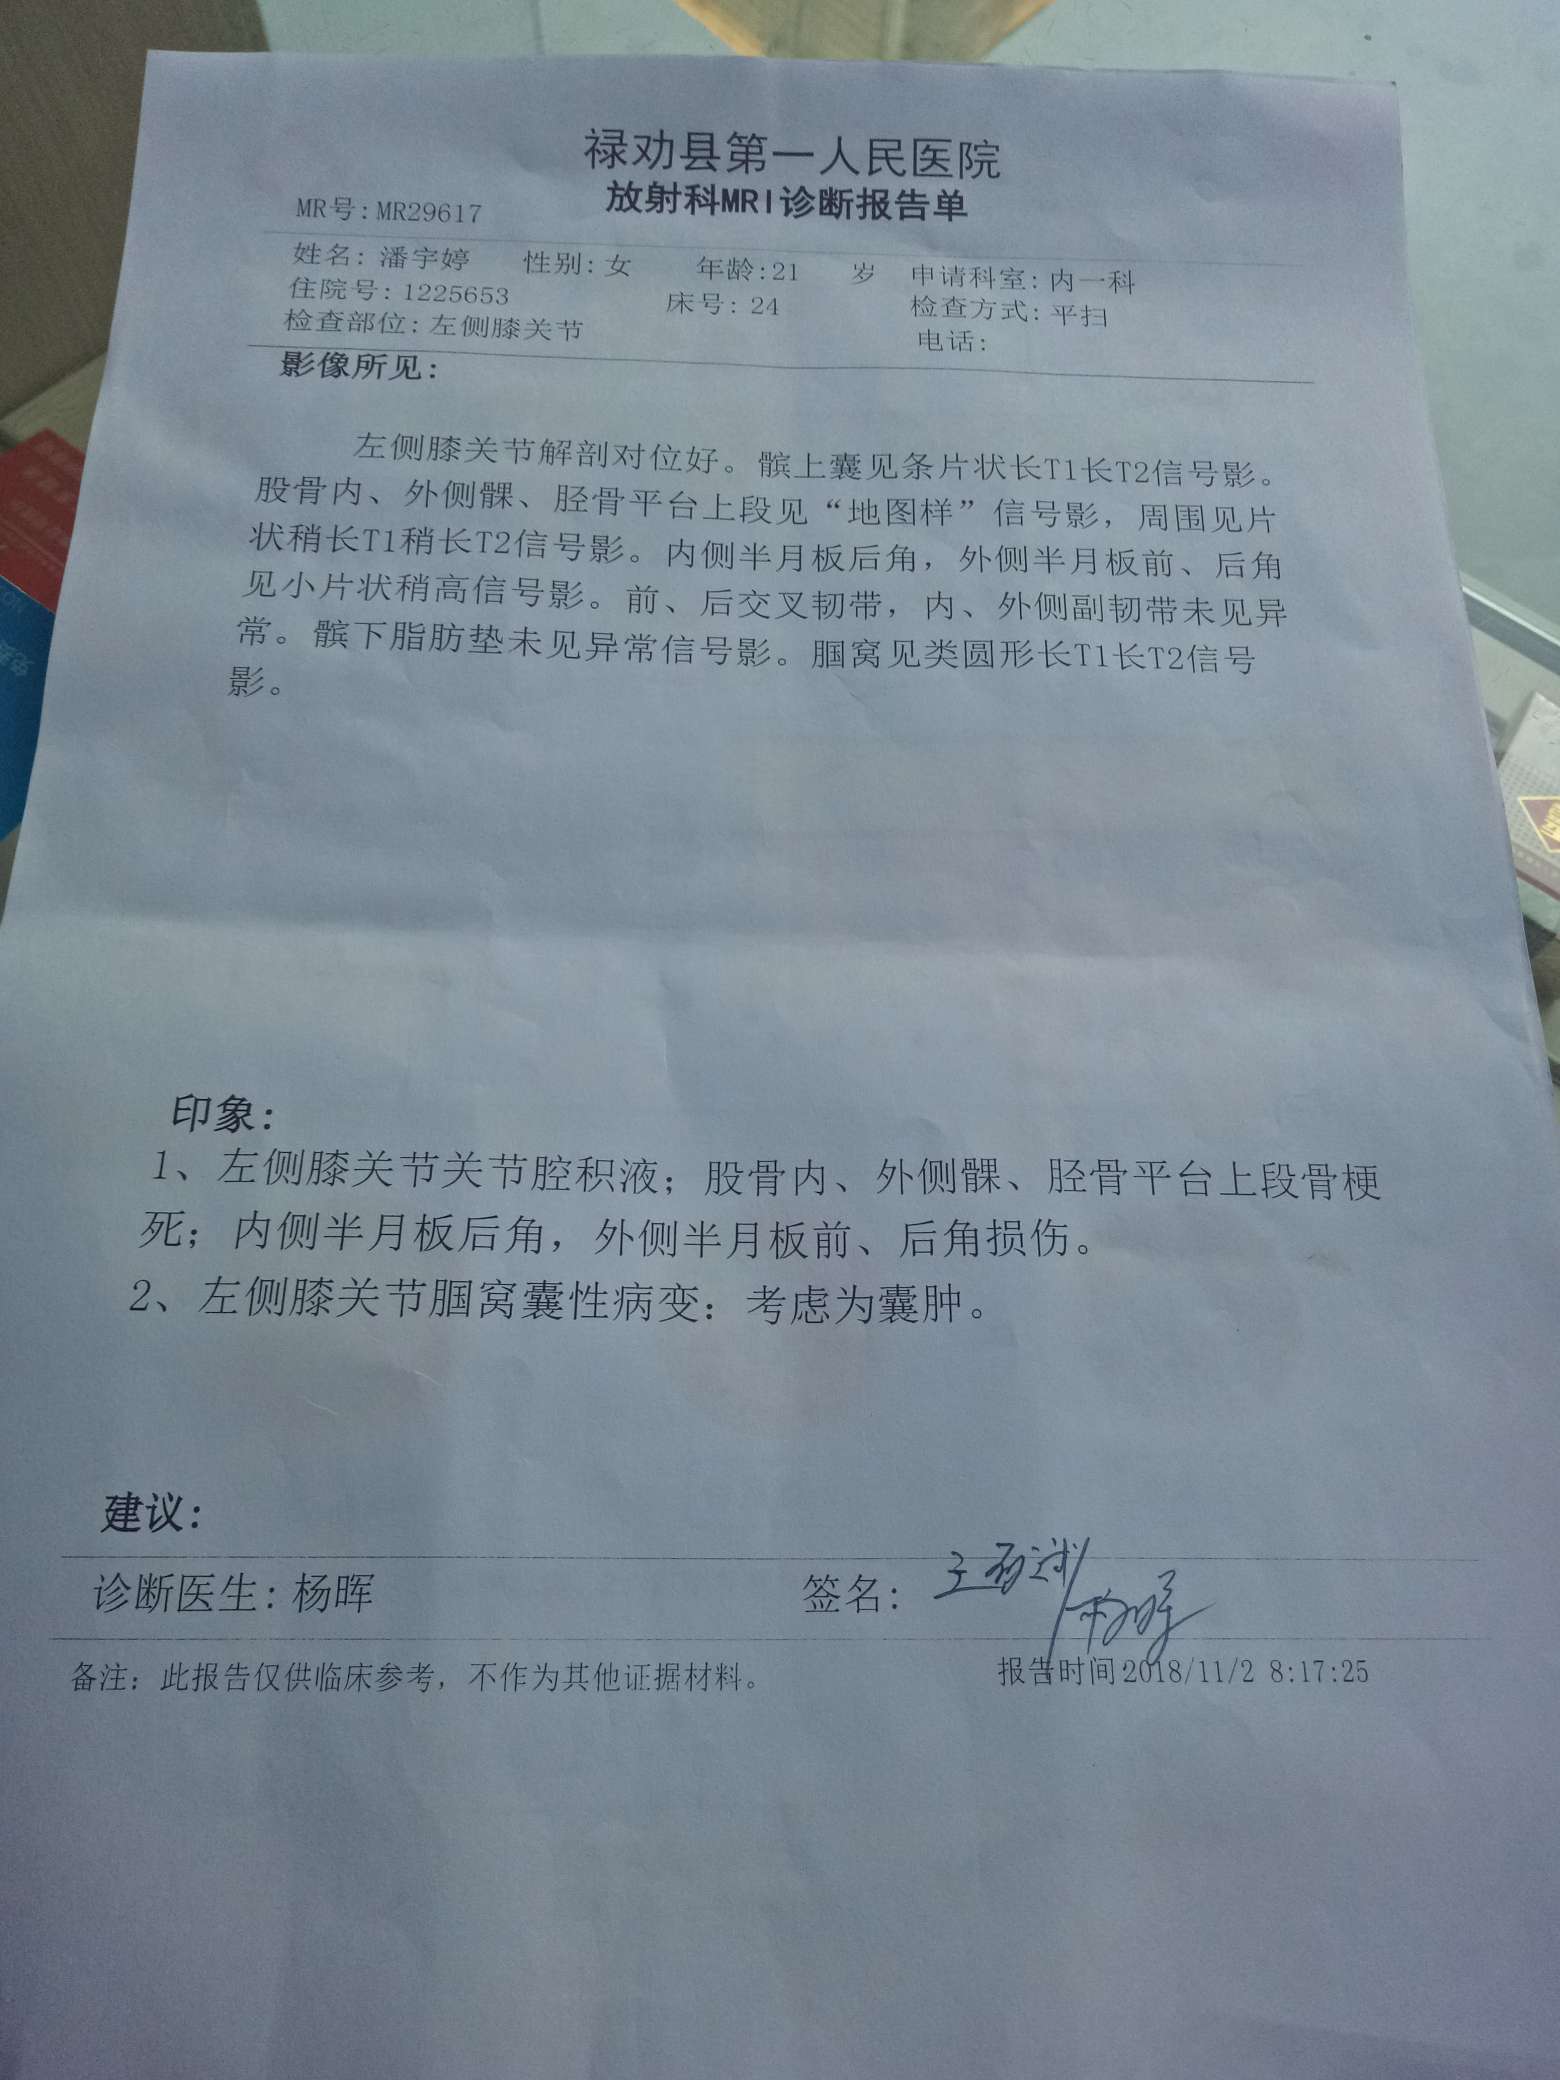 禄劝县第一人民医院
放射科MRI诊断报告单
MR号:MR29617
姓名: 潘宇婷 性别: 女 年龄:21 岁 申请科室: 内一科
住院号: 1225653 床号: 24 检查方式: 平扫
检查部位: 左侧膝关节 电话:
影像所见:
左侧膝关节解剖对位好。髌上囊见条片状长T1长T2信号影。
股骨内、外侧髁、胫骨平台上段见“地图样”信号影，周围见片
状稍长T1稍长T2信号影。内侧半月板后角，外侧半月板前、后角
见小片状稍高信号影。前、后交叉韧带，内、外侧副韧带未见异
常。髌下脂肪垫未见异常信号影。腘窝见类圆形长T1长T2信号
影。
印象:
1、左侧膝关节关节腔积液；股骨内、外侧髁、胫骨平台上段骨梗
死；内侧半月板后角，外侧半月板前、后角损伤。
2、左侧膝关节腘窝囊性病变：考虑为囊肿。
建议:
诊断医生: 杨晖 签名:
备注: 此报告仅供临床参考，不作为其他证据材料。 报告时间 2018/11/2 8:17:25